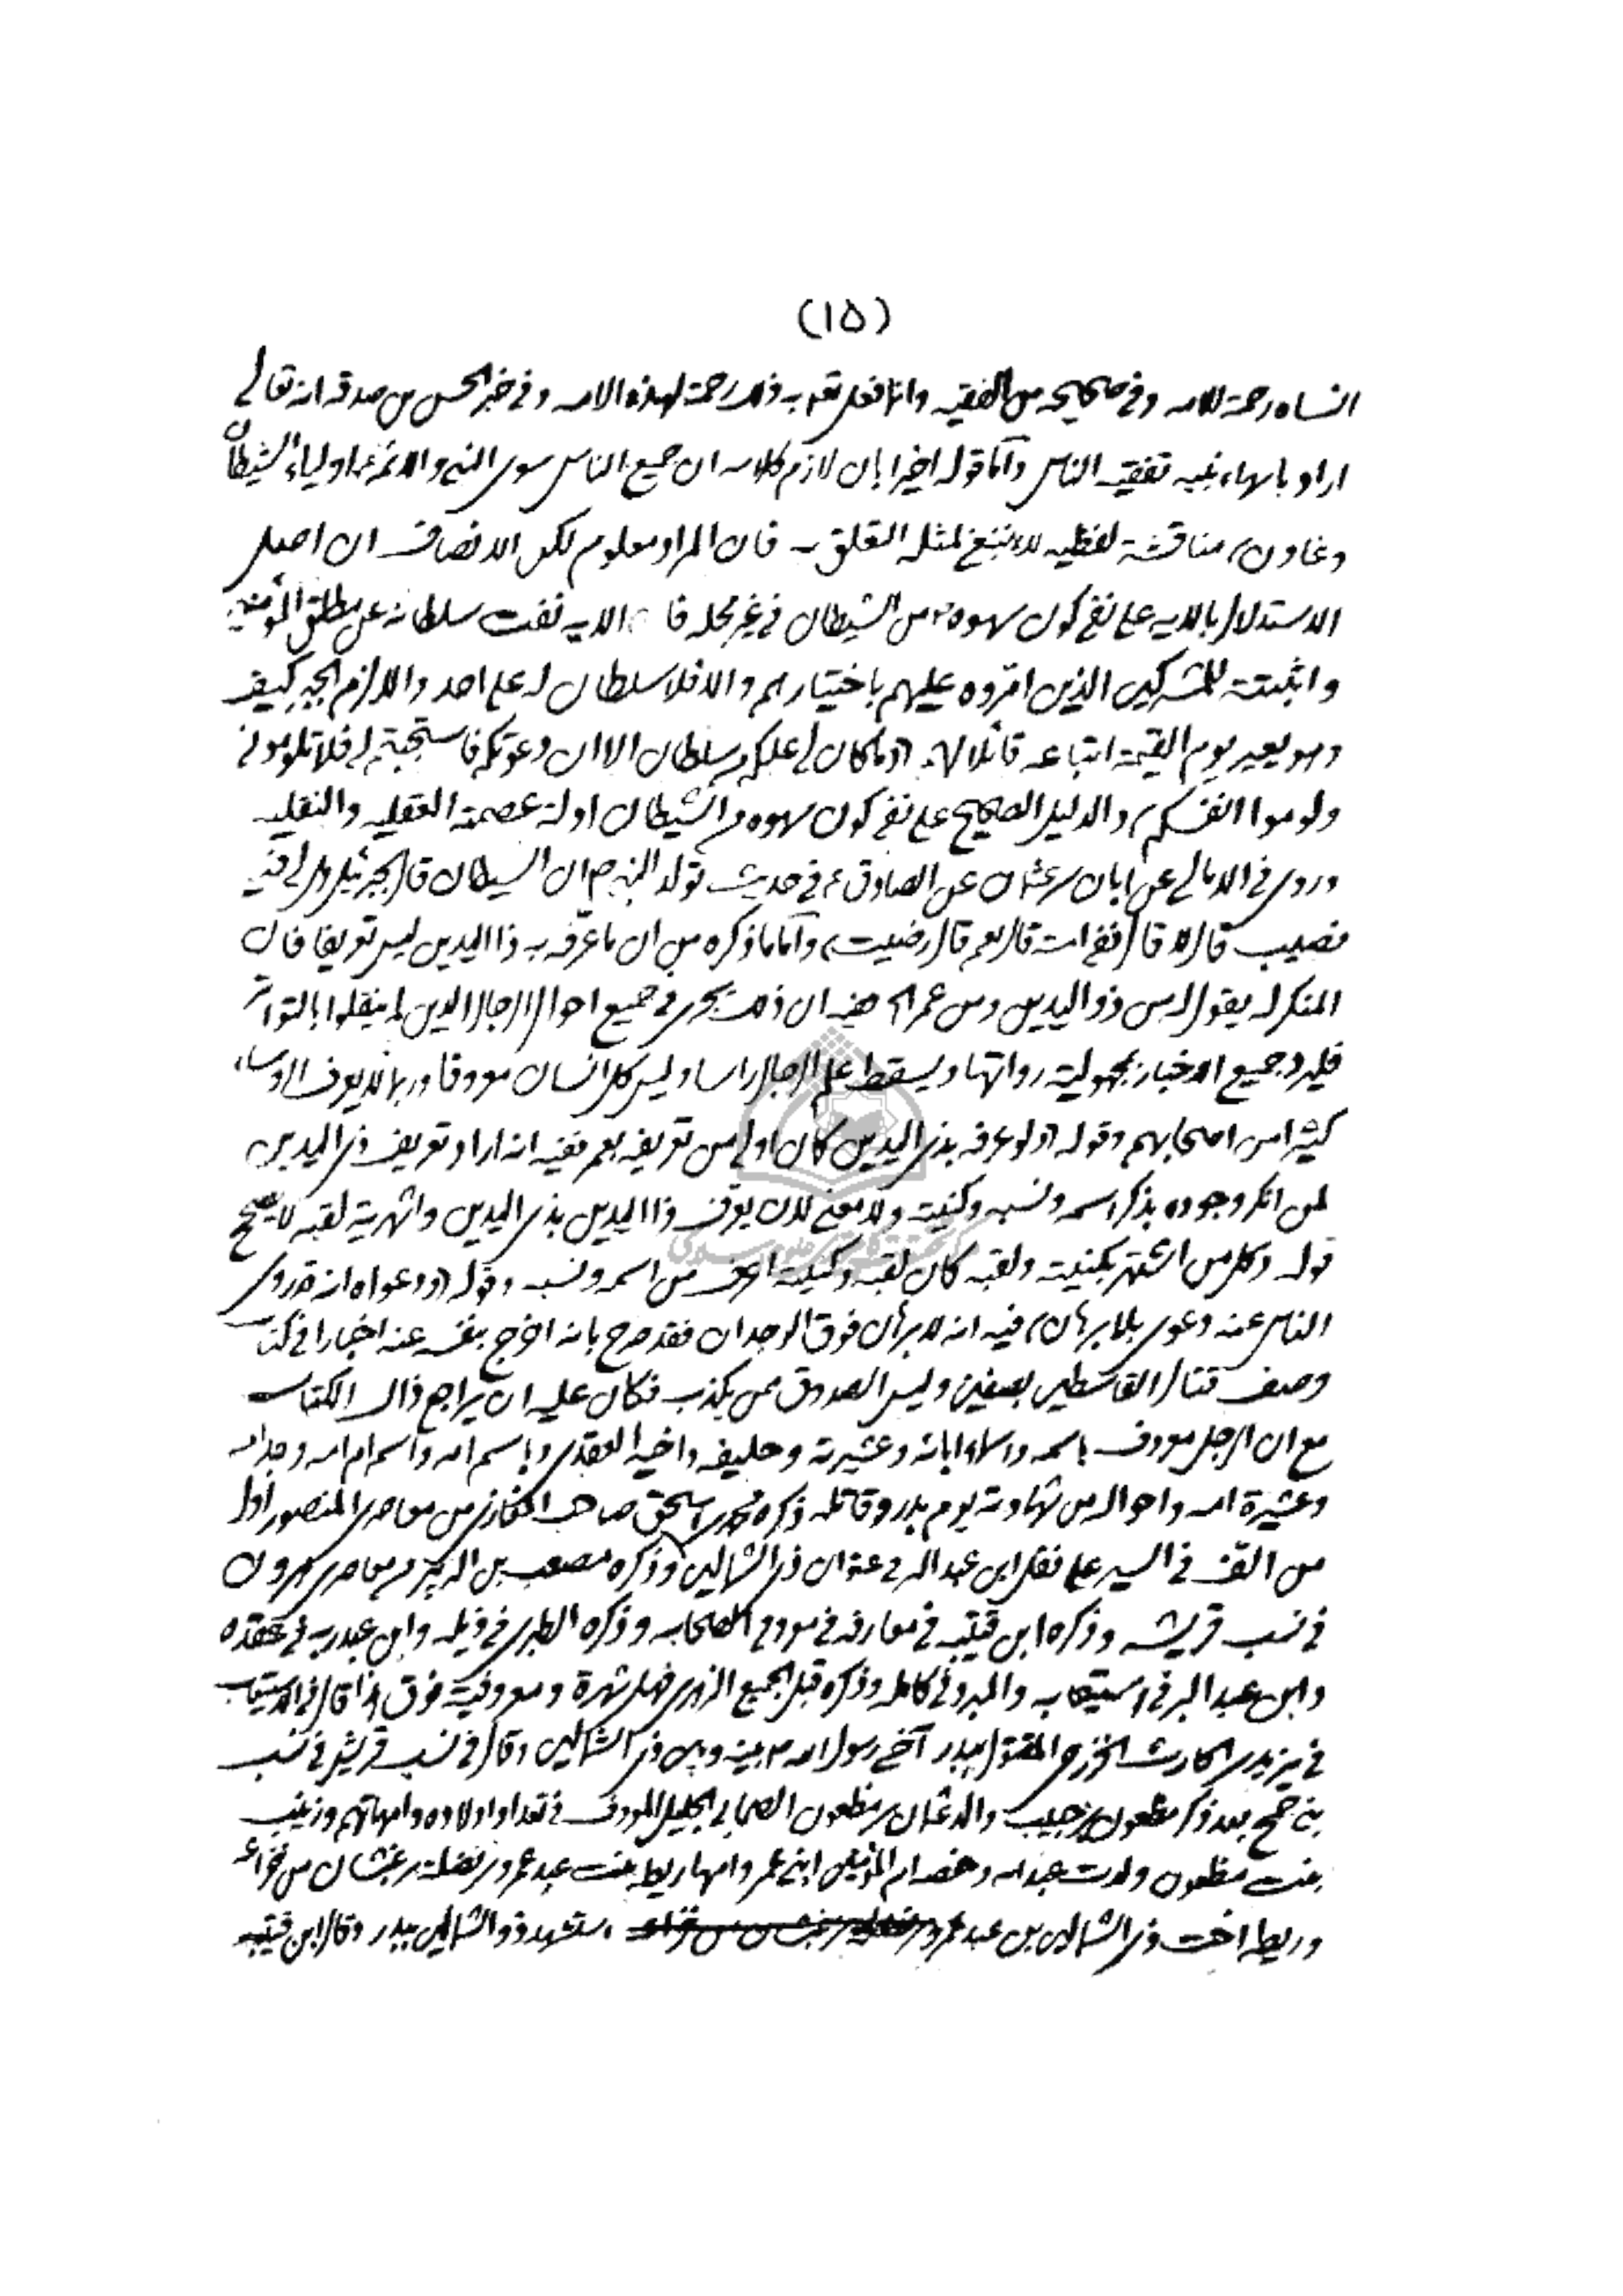 (١٥)
انساه رحمة للامه وفي صحيحه من الفقيه وانما فعل تعه به ذلك رحمة لهذه الامه وفي خبر الحسن بن صدقه انه تعالى
اراد بانهاء نبيه تفقيه الناس واما قوله اخيرا بان لازم كلامه ان جميع الناس سوى النبي والائمة ع اولياء الشيطان
وغاون، مناقشة لفظيه لا ينبغي لمثله التعلق به فان المراد معلوم لكن الانصاف ان اصل
الاستدلال بالايه على نفى كون سهوه ص من الشيطان في غير محله فا الايه نفت سلطانه عن مطلق المؤمنين
واثبتته للمشركين الذين اقروه عليهم باختيارهم والا فلا سلطان له على احد والا لزم الجبر كيف
وهو يعير يوم القيمة اتباعه قائلا لهم (وما كان لي عليكم من سلطان الا ان دعوتكم فاستجبتم لي فلا تلوموني
ولوموا انفسكم) والدليل الصحيح على نفى كون سهوه من الشيطان ادلة عصمته العقليه والنقليه
وروى في الامالي عن ابان بن عثمان عن الصادق ع في حديث تولد النبي ص ان الشيطان قال لجبرئيل هل لي فيه
نصيب قال لا قال ففي امته قال نعم قال رضيت، واما ما ذكره من ان ما عرّفه به ذا اليدين ليس تعريفا فان
المنكر له يقول ليس ذو اليدين ومن عمر الخ ففيه ان ذلك يجرى في جميع احوال الرجال الذين لم ينقلوا بالتواتر
فليرد جميع الاخبار بمجهولية رواتها ويسقط علم الرجال راسا وليس كل انسان معروفا وربما لا يعرف الروساء
كثيرا من اصحابهم وقوله (ولو عرفه بذى اليدين كان اولى من تعريفه بعمر ففيه انه اراد تعريف ذى اليدين
لمن انكر وجوده بذكر اسمه ونسبه وكنيته ولا معنى لان يعرّف ذا اليدين بذى اليدين واشهرية لقبه لا يصحح
قوله وكل من اشتهر بكنيته ولقبه كان لقبه وكنيته اعرف من اسمه ونسبه وقوله (ودعواه انه قد روى
الناس عنه دعوى بلا برهان) فيه انه لا برهان فوق الوجدان فقد صرح بانه اخرج بنفسه عنه اخبارا في كتاب
وصف قتال القاسطين بصفين وليس الصدوق ممن يكذب فكان عليه ان يراجع ذاك الكتاب
مع ان الرجل معروف باسمه واسماء ابائه وعشيرته وحليفه واخيه العقدى وباسم امه واسم ام امه وجدامه
وعشيرة امه واحواله من شهادته يوم بدر وقاتله ذكره محمد بن اسحق صاحب المغازى من معاصرى المنصور اول
من الّف في السير على نقل ابن عبد البر في عنوان ذى الشمالين وذكره مصعب بن الزبير من معاصرى هرون
في نسب قريش وذكره ابن قتيبه في معارفه في معروفى الصحابه وذكره الطبرى في ذيله وابن عبدربه في عقده
وابن عبد البر في استيعابه والمبرد في كامله وذكره قبل الجميع الزهرى فهل شهرة ومعروفية فوق ذا قال في الاستيعاب
في يزيد بن الحارث الخزرجى المقتول ببدر آخى رسول الله ص بينه وبين ذى الشمالين وقال في نسب قريش في نسب
بني جمح بعد ذكر مظعون بن حبيب والد عثمان بن مظعون الصحابي الجليل المعروف في تعداد اولاده وامهاتهم وزينب
بنت مظعون ولدت عبدالله وحفصه ام المؤمنين ابنى عمر وامها ريطه بنت عبد عمرو بن نضلة بن غبشان من خزاعه
وريطه اخت ذى الشمالين بن عبد عمرو استشهد ذو الشمالين ببدر وقال ابن قتيبه